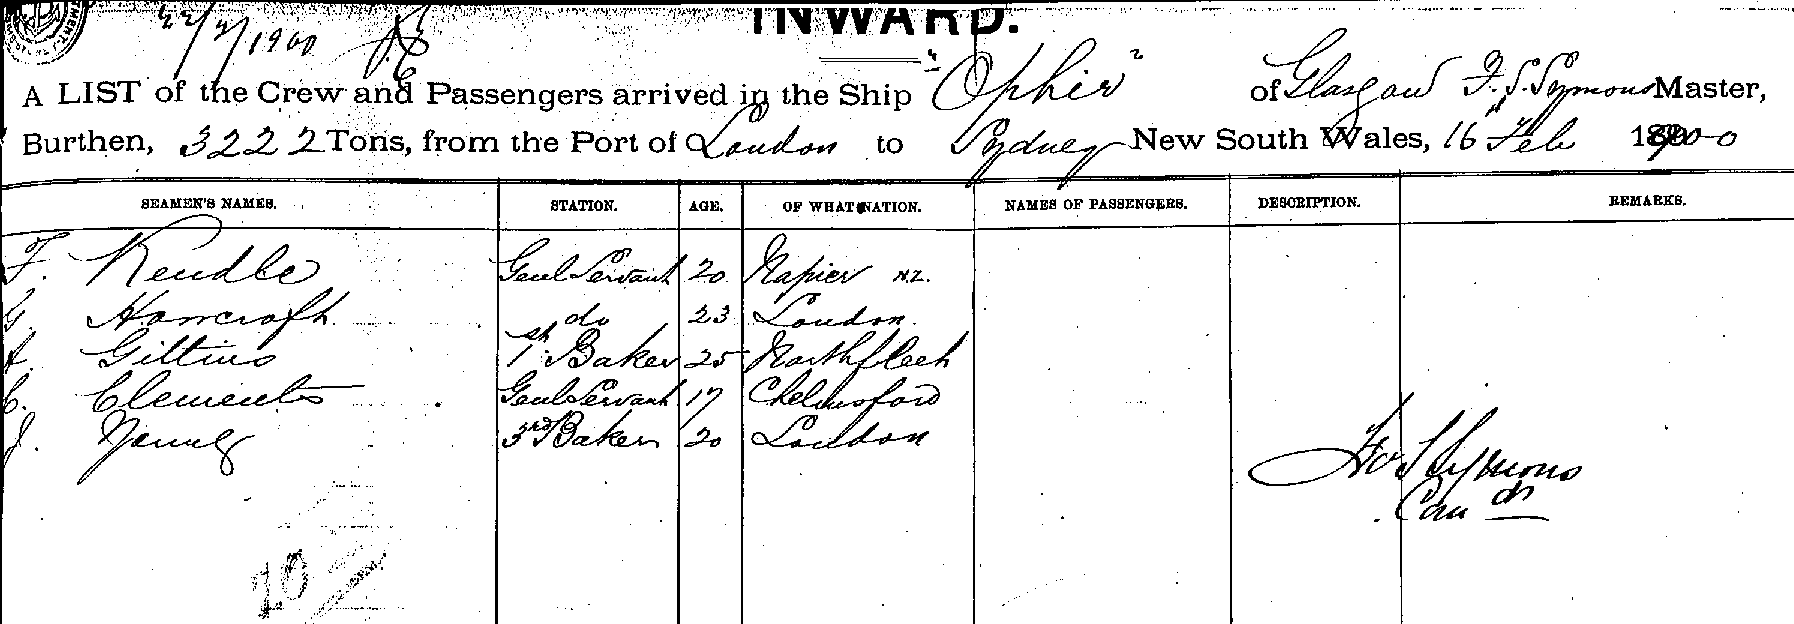 INWARD.
22/2/1900
A LIST of the Crew and Passengers arrived in the Ship "Ophir" of Glasgow F. S. Symons Master,
Burthen, 3222 Tons, from the Port of London to Sydney New South Wales, 16 Feb 1900
SEAMEN'S NAMES. STATION. AGE. OF WHAT NATION. NAMES OF PASSENGERS. DESCRIPTION. REMARKS.
F. Kendle Genl Servant 20 Napier N.Z.
G. Howcroft do 23 London
A. Gittins 1st Baker 25 Northfleet
C. Clements Genl Servant 17 Chelmsford
J. Young 3rd Baker 20 London
Symons
Comdr
70